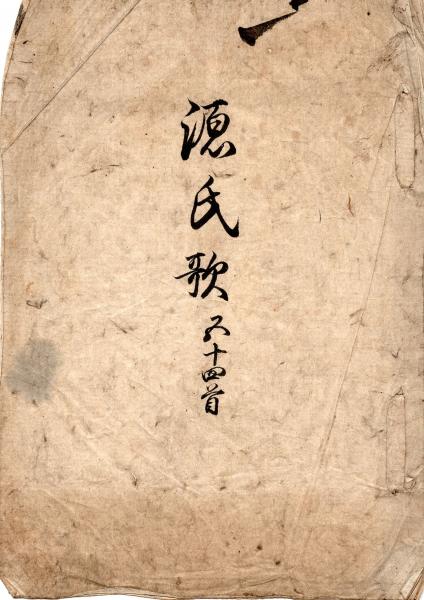 源氏歌五十四首